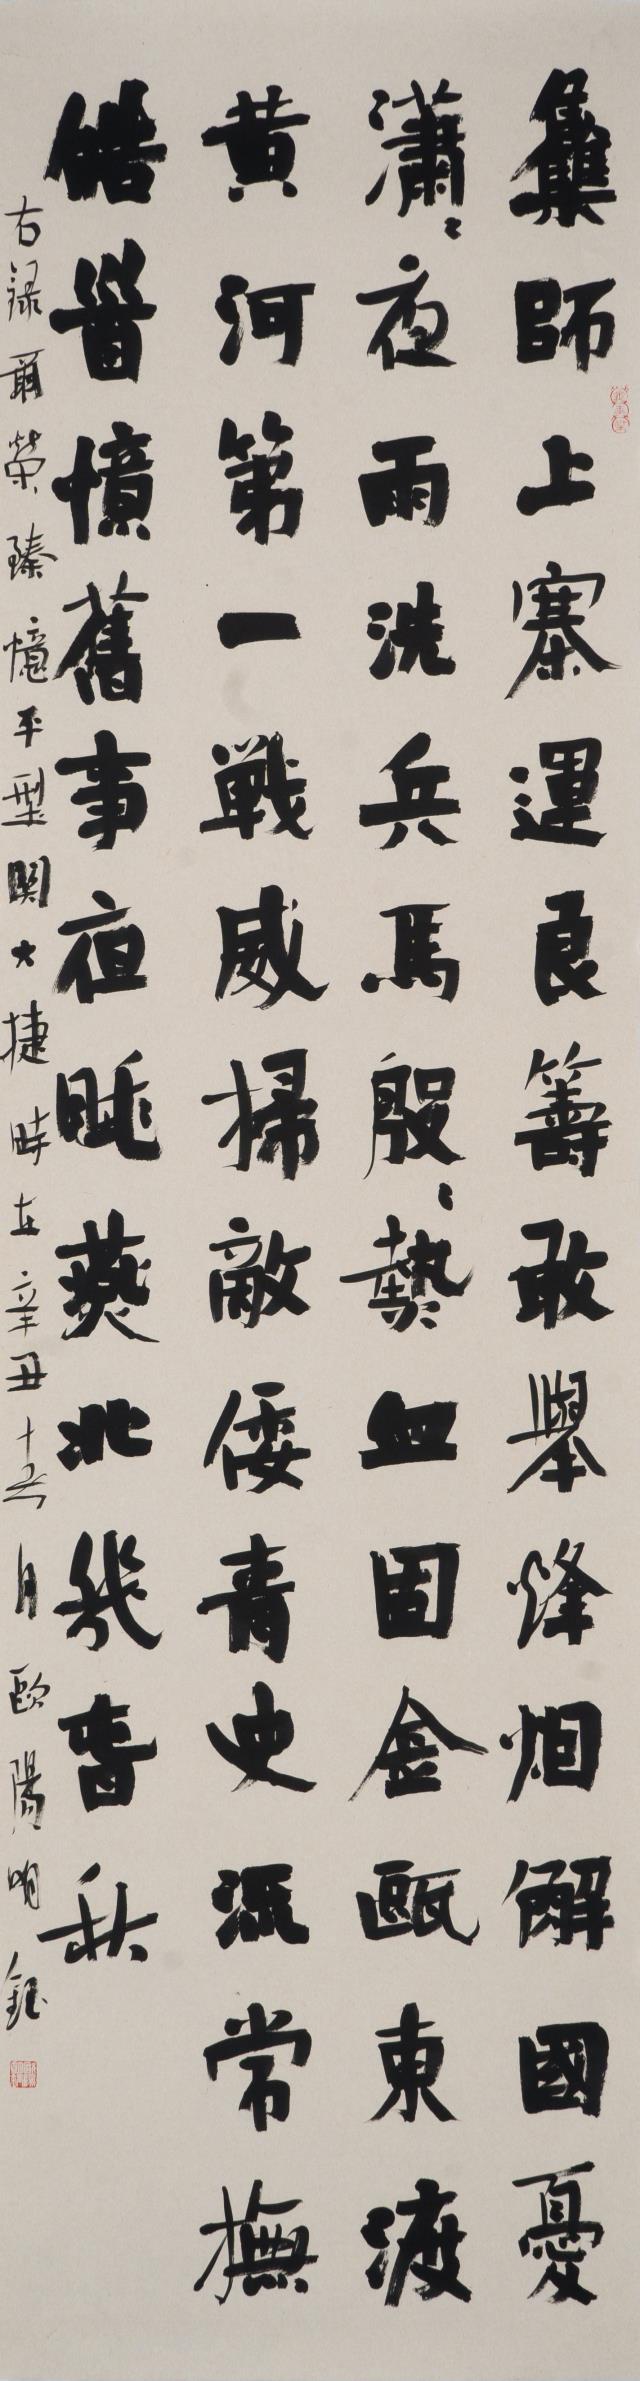 集師上寨運良籌敢舉烽炬解國憂
瀟〻夜雨洗兵馬殷〻熱血固金甌東渡
黃河第一戰威掃敵倭青史流常撫
皓首憶舊事夜眺燕北幾春秋
右錄聶榮臻憶平型關大捷時在辛丑十一月歐陽明鈺